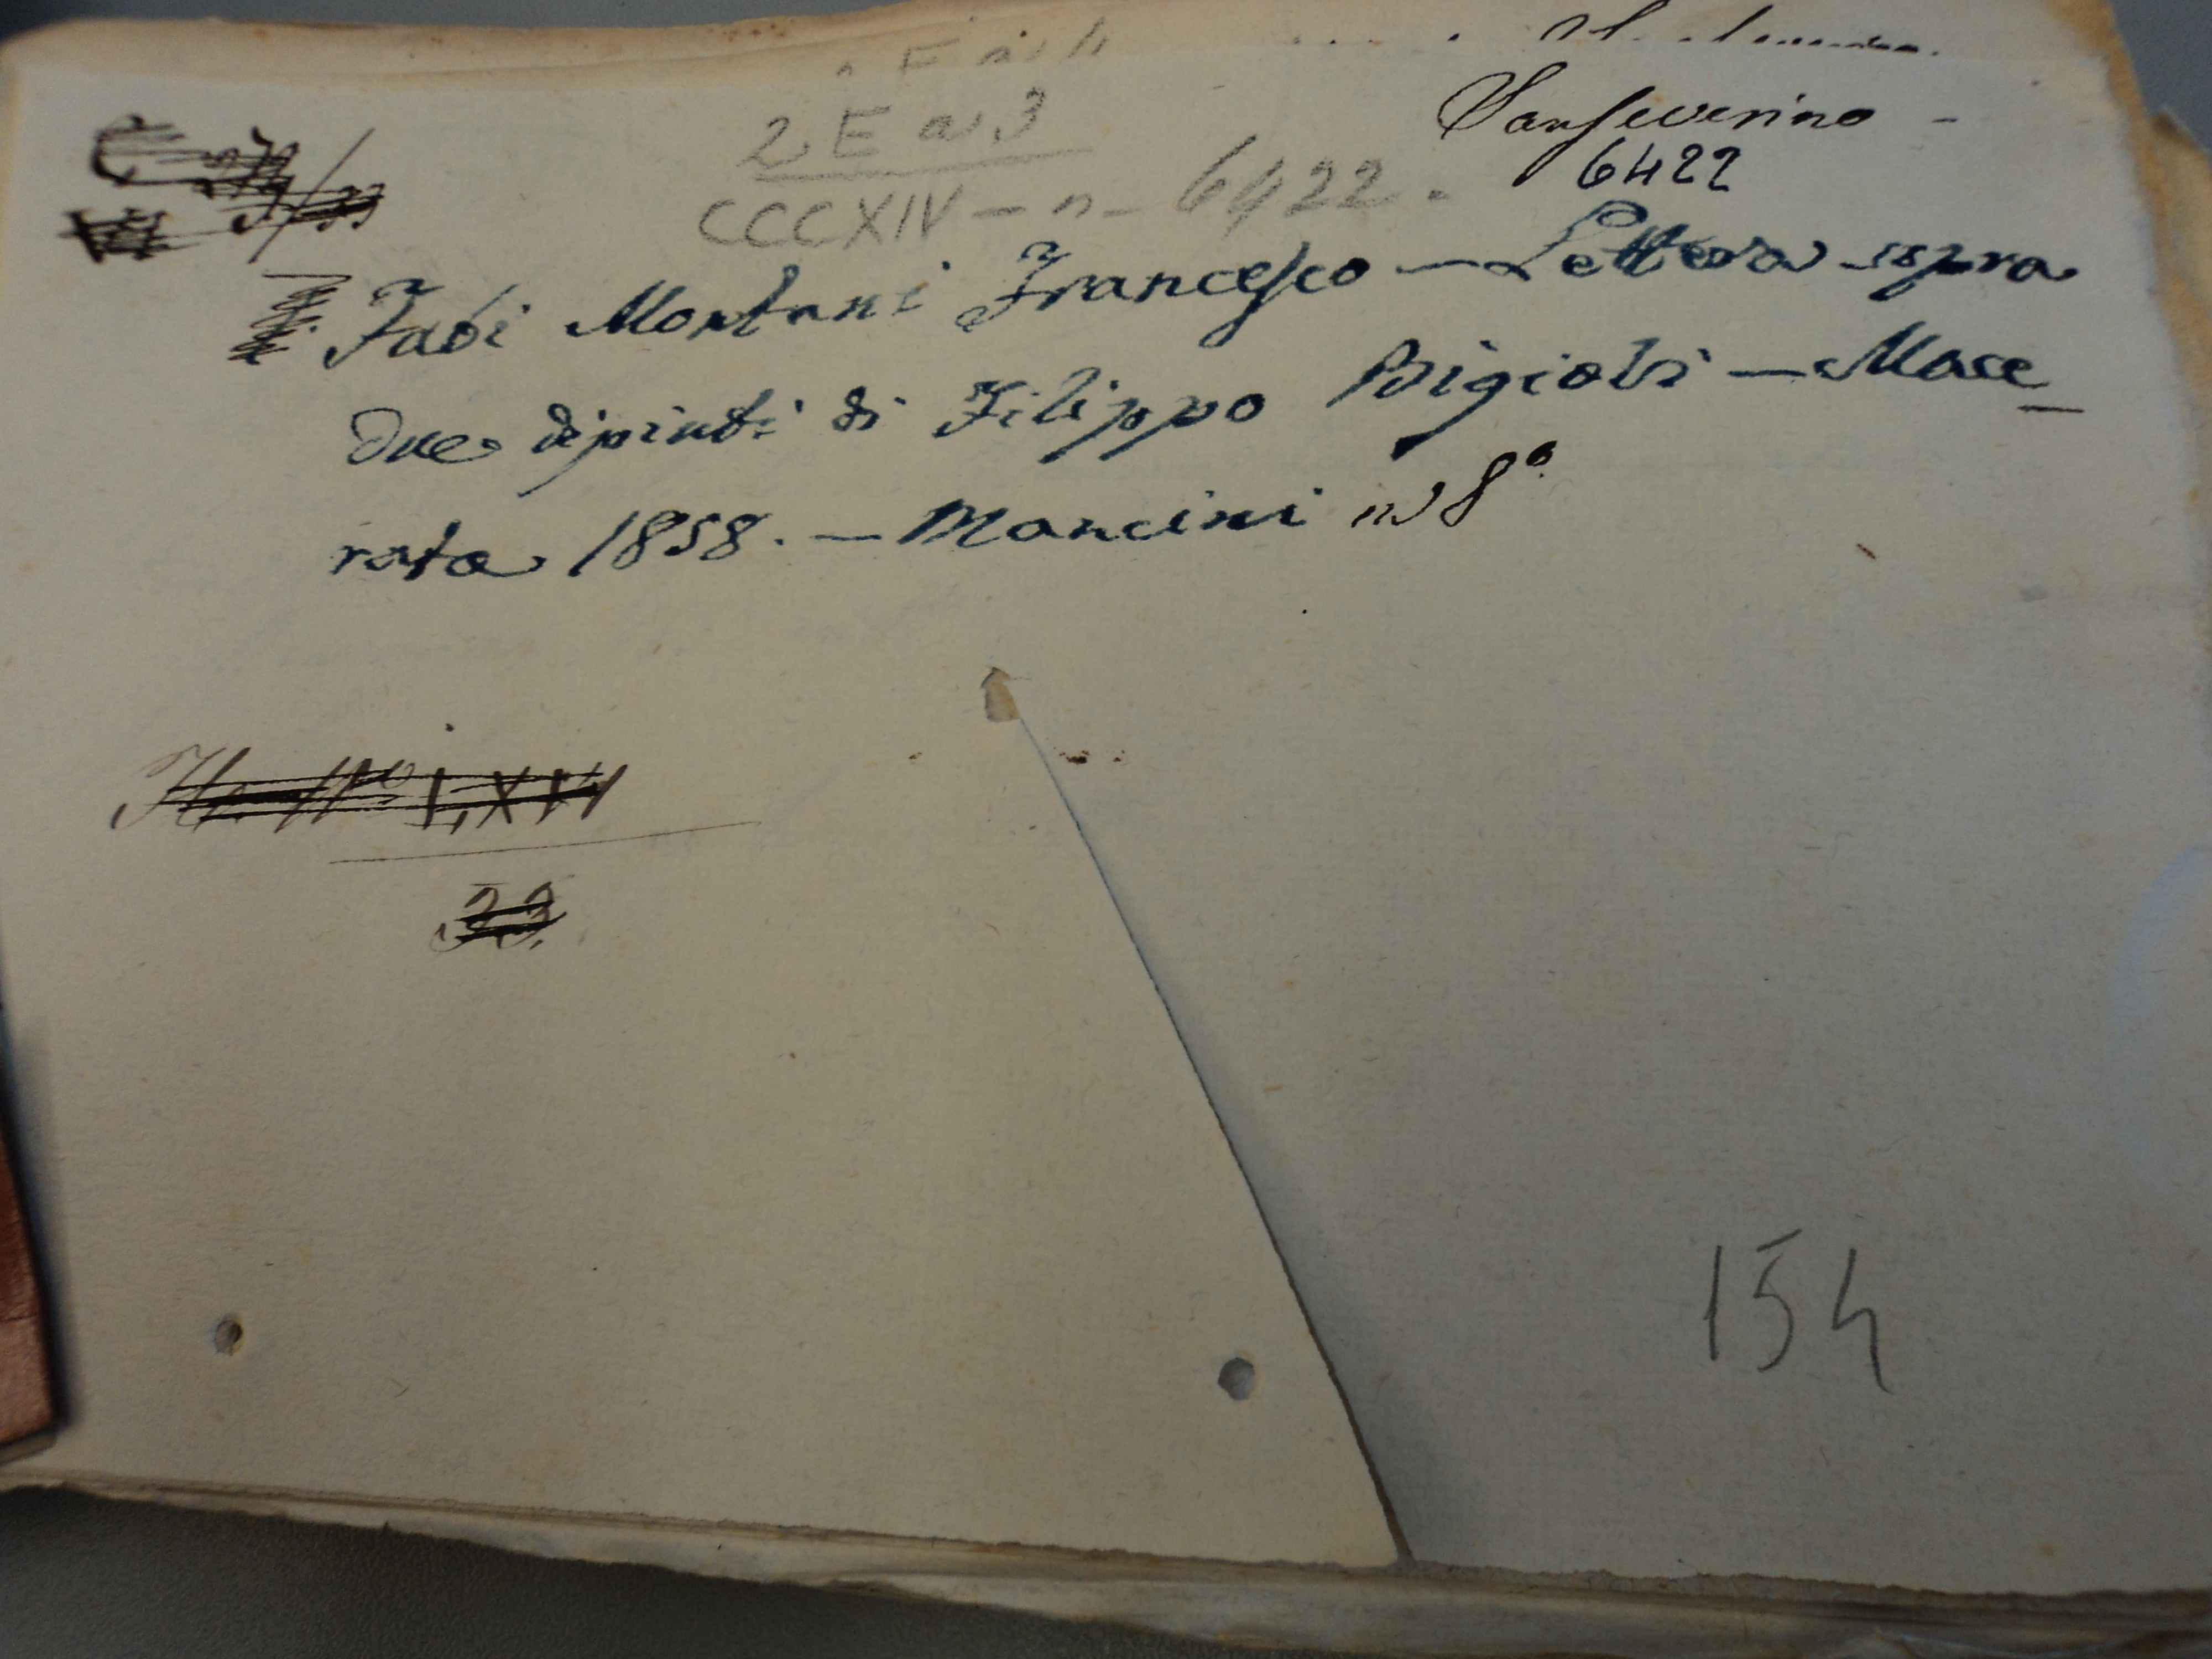 2 E a 3
Sanseverino -
6422
CCCXIV - n - 6422.
Fabi Montani Francesco - Lettera sopra
due dipinti di Filippo Bigioli - Mace
rata 1858. - Mancini in 8°
LXIV
33.
154